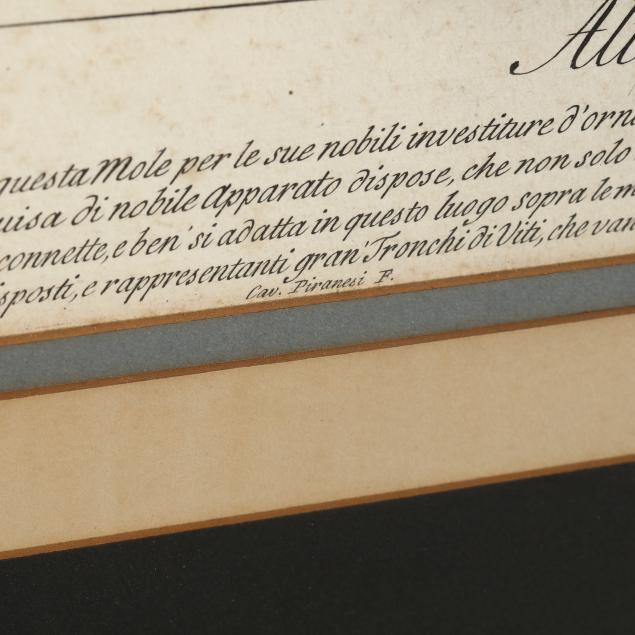 All
questa Mole per le sue nobili investiture d'orn
uisa di nobile Apparato dispose, che non solo
connette, e ben' si adatta in questo luogo sopra le m
sposti, e rappresentanti gran' Tronchi di Viti, che van
Cav. Piranesi F.